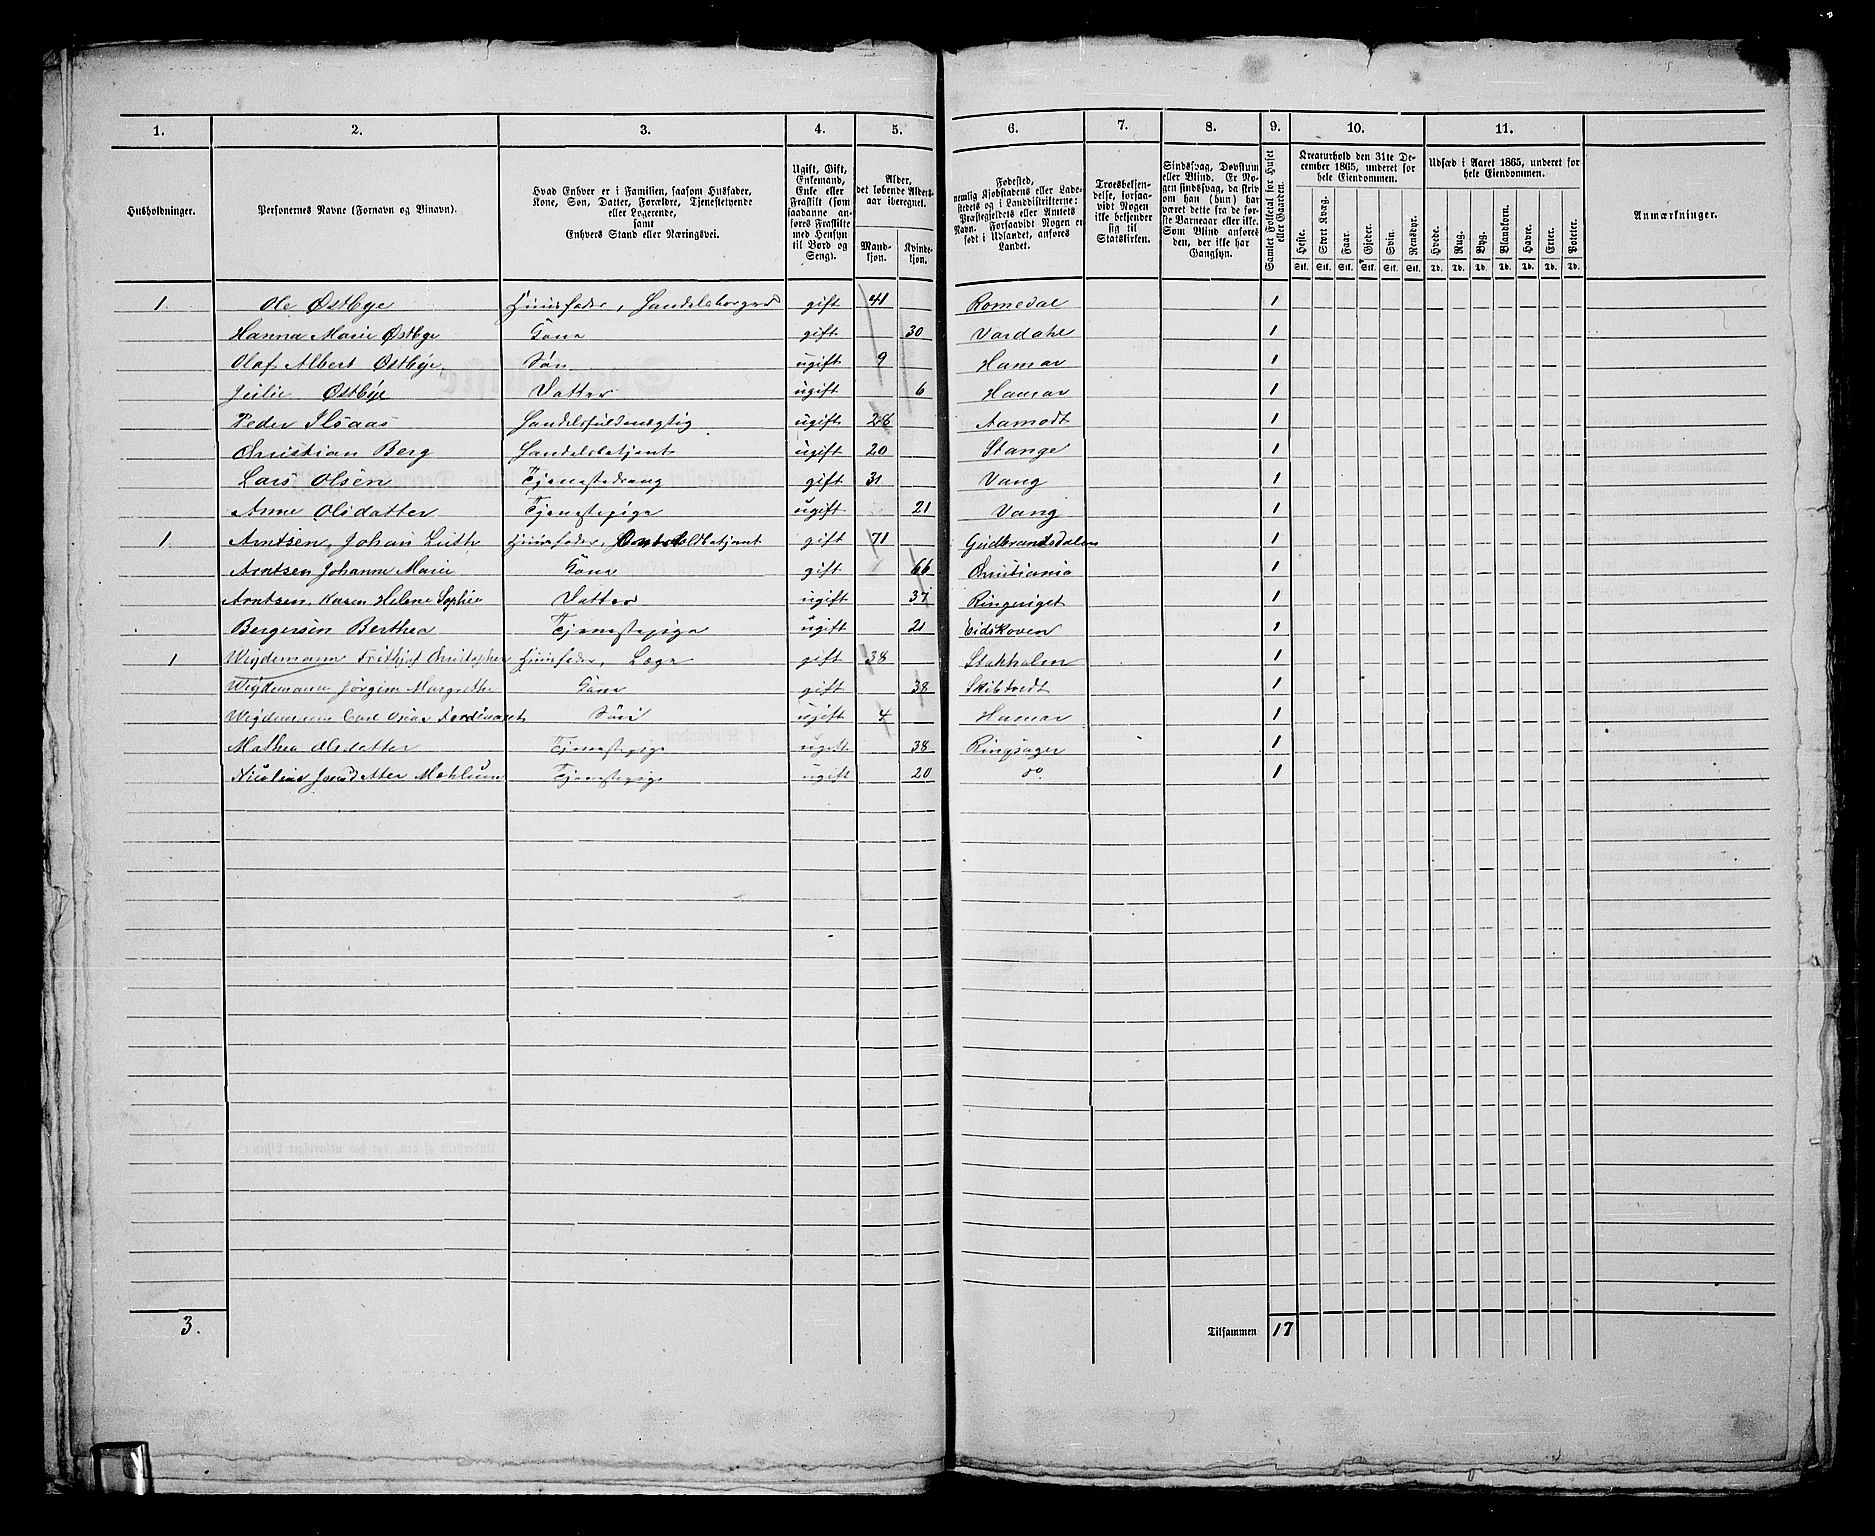 1. 2. 3. 4. 5. 6. 7. 8. 9. 10. 11.
Husholdninger.
Personernes Navne (Fornavn og Binavn).
Hvad Enhver er i Familien, saasom Husfader,
Kone, Søn, Datter, Forældre, Tjenestetyende
eller Logerende,
samt
Enhvers Stand eller Næringsvei.
Ugift, Gift,
Enkemand,
Enke eller
Fraskilt (som
saadanne an-
føres Fraskilte
med Hensyn
til Bord og
Seng).
Alder,
det løbende Alders-
aar iberegnet.
Mand-
kjøn.
Kvinde-
kjøn.
Fødested,
nemlig Kjøbstadens eller Lade-
stedets og i Landdistrikterne:
Præstegjeldets eller Amtets
Navn. Forsaavidt Nogen er
født i Udlandet, anføres
Landet.
Troesbekjen-
delse, forsaa-
vidt Nogen
ikke bekjender
sig til
Statskirken.
Sindssvag, Døvstum
eller Blind. Er No-
gen sindssvag, da skriv
om han (hun) har
været dette fra de før-
ste Barneaar eller ikke.
Som Blind anføres
den, der ikke har
Gangsyn.
Samlet Folketal for Huset
eller Gaarden.
Kreaturhold den 31te De-
cember 1865, underet for
hele Eiendommen.
Heste. Stort Kvæg. Faar. Gjeder. Svin. Rensdyr.
Stk. Stk. Stk. Stk. Stk. Stk.
Udsæd i Aaret 1865, underet for
hele Eiendommen.
Hvede. Rug. Byg. Blandkorn. Havre. Erter. Poteter.
Td. Td. Td. Td. Td. Td. Td.
Anmærkninger.
1. Ole Østbye Huusfader, Handelsborger gift 41 Romedal 1
Hanna Marie Østbye Kone gift 30 Vardahl 1
Olaf Albert Østbye Søn ugift 9 Hamar 1
Julie Østbye Datter ugift 6 Hamar 1
Peder Ilsaas Handelsfuldmægtig ugift 28 Aamodt 1
Christian Berg Handelsbetjent ugift 20 Stange 1
Lars Olsen Tjenestedreng gift 31 Vang 1
Anne Olsdatter Tjenestepige ugift 21 Vang 1
1. Arntsen, Johan Huusfader, gift 71 Gudbrandsdalen 1
Arntsen Johanne Marie Kone gift 66 Christiania 1
Arntsen, Karen Helene Sophie Datter ugift 37 Ringeriget 1
Bergersen Berthea Tjenestepige ugift 21 Eidskoven 1
1 Weydemann Frithjof Christopher Huusfader, Læge gift 38 1
Weydemann Jørgine Margrethe Kone gift 38 Skibtvedt 1
Weydemann Carl Oscar Ferdinand Søn ugift 4 Hamar 1
Mathea Olsdatter Tjenestepige ugift 38 Ringsager 1
Nicoline Mæhlum Tjenestepige ugift 20 do. 1
3. Tilsammen 17